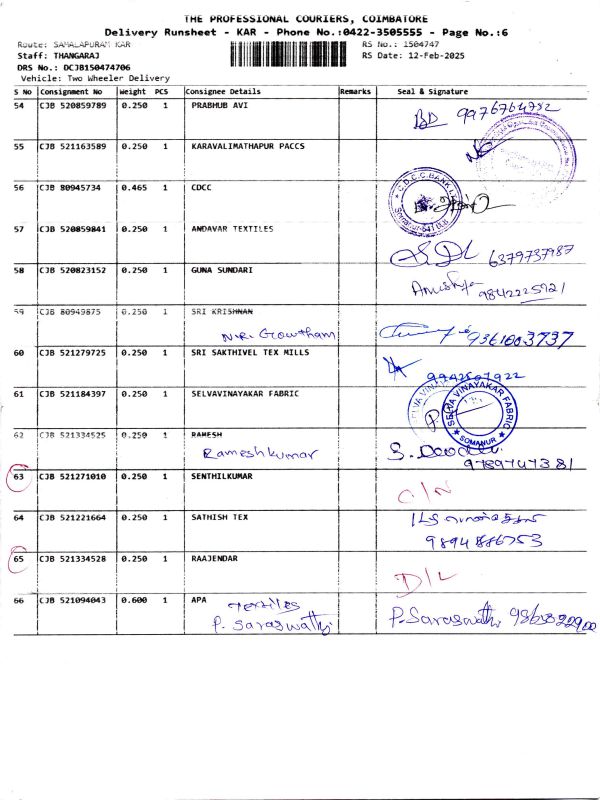 THE PROFESSIONAL COURIERS, COIMBATORE
Delivery Runsheet - KAR - Phone No.:0422-3505555 - Page No.:6
Route: SAMALAPURAM KAR
RS No.: 1504747
Staff: THANGARAJ
RS Date: 12-Feb-2025
DRS No.: DCJB150474706
Vehicle: Two Wheeler Delivery
S No Consignment No Weight PCS Consignee Details Remarks Seal & Signature
54 CJB 520859789 0.250 1 PRABHUB AVI
9976764732
55 CJB 521163589 0.250 1 KARAVALIMATHAPUR PACCS
56 CJB 80945734 0.465 1 CDCC
C.D.C.C. BANK
57 CJB 520859841 0.250 1 ANDAVAR TEXTILES
6379737987
58 CJB 520823152 0.250 1 GUNA SUNDARI
9842225921
59 CJB 80949875 0.250 1 SRI KRISHNAN
N.R. Growtham 9361003737
60 CJB 521279725 0.250 1 SRI SAKTHIVEL TEX MILLS
9942507922
61 CJB 521184397 0.250 1 SELVAVINAYAKAR FABRIC
SELVA VINAYAKAR FABRIC
★ SOMANUR ★
62 CJB 521334525 0.250 1 RAMESH
Rameshkumar
9789747381
63 CJB 521271010 0.250 1 SENTHILKUMAR
64 CJB 521221664 0.250 1 SATHISH TEX
9894886753
65 CJB 521334528 0.250 1 RAAJENDAR
D/L
66 CJB 521094043 0.600 1 APA Textiles
P. Saraswathi P. Saraswathi